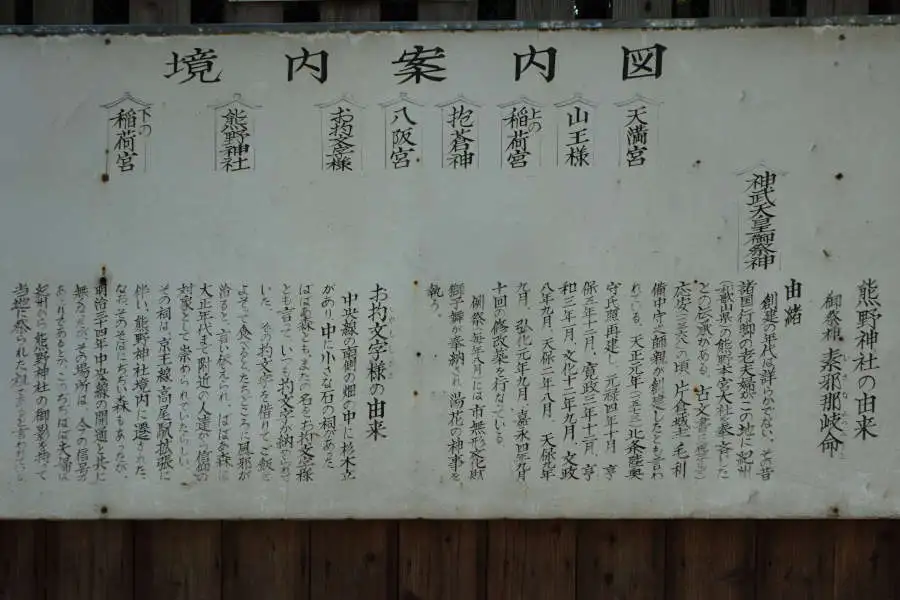 境内案内図
天満宮
山王様
上の稲荷宮
抱蒼神
八阪宮
お杓文字様
熊野神社
下の稲荷宮
神武天皇御祭神
熊野神社の由来
御祭神 素邪那岐命
由緒
創建の年代は詳らかでない、その昔
諸国行脚の老夫婦がこの地に紀州
熊野本宮大社を奉斎した
との伝承がある。古文書に
の頃、片倉城主毛利
備中守師親が創建したとも言わ
れている。天正元年 北条陸奥
守氏照再建し、元禄四年十月、亨
保三年十二月、寛政三年十二月、亨
和三年二月、文化十二年九月、文政
八年九月、天保二年八月、天保九年
九月、弘化元年九月、嘉永四年九月
十回の修改築を行なっている。
例祭は毎年八月には市無形文化財
獅子舞が奉納され、湯花の神事を
執う。
お杓文字様の由来
中央線の南側の畑の中に杉木立
があり、中に小さな石の祠があった。
ばばあ森ともまたの名をお杓文字様
とも言って、いつも杓文字が納めてあ
いた。その杓文字を借りてご飯
よそって食べるとたちどころに風邪が
治ると言い伝えられ、ばばあ森は
大正年代まで附近の人達から信仰の
対象として崇められていたらしい。
その祠は、京王線高尾駅拡張に
伴い、熊野神社境内に遷された。
なおそのそばにぢぢい森もあったが
明治三四年中央線の開通と共に
無くなった。その場所は、今の信号
あたりであるとか、このぢぢばば夫婦は
熊野神社の御影を持って
当地に祭られた